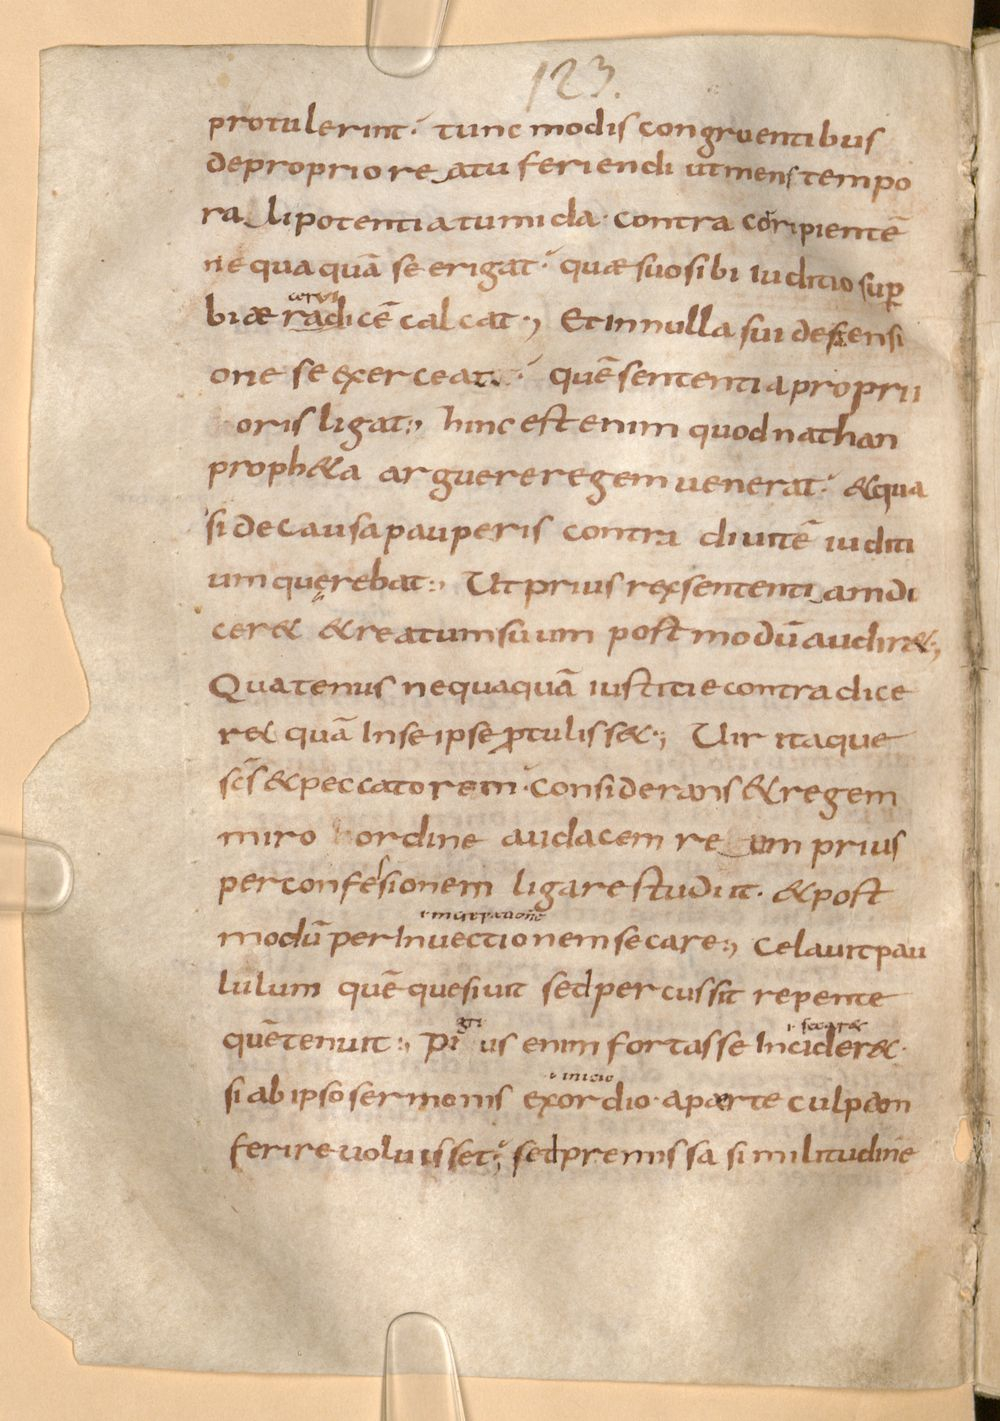 123.
protulerint. tunc modis congruentibus
de proprio reatu feriendi ut mens tempo
rali potentia tumida. contra corripientē
nequaquā se erigat. quae suo sibi iuditio sup̄
cervi
biae radicē calcat., Et in nulla sui defensi
one se exerceat. quē sententia proprii
oris ligat., hinc est enim quod nathan
proph&a arguere regem venerat. & qua
si de causa pauperis contra divitē iuditi
um quęrebat., Ut prius rex sententiam di
cer& & reatum suum postmodū audir&.,
Quatenus nequaquā iustitie contradice
r& quā In se ipse ꝓtuliss&., Uir itaque
scs̄ & peccatorem. considerans & regem
miro ordine audacem reum prius
per confessionem ligare studuit. & post
i increpationē
modū per Invectionem secare., Celavit pau
lulum quē quesivit sed percussit repente
quē tenuit., Pigrius enim fortasse Incider&.
i inicio
si ab ipso sermonis exordio. aperte culpam
ferire voluisset., sed premissa similitudine